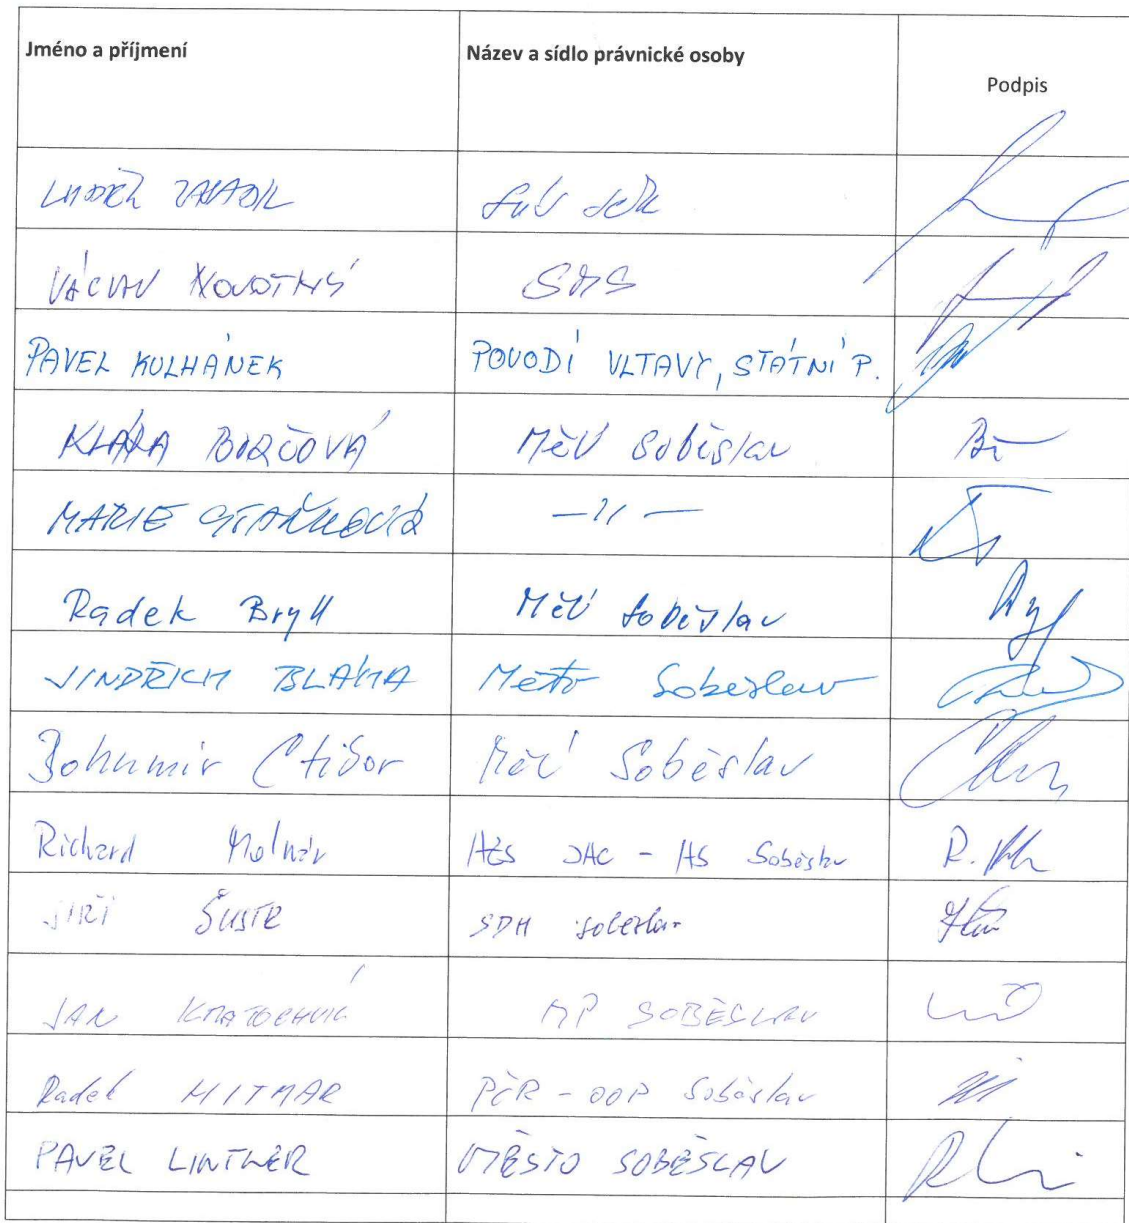 Jméno a příjmení Název a sídlo právnické osoby Podpis
LUDĚK ZAHADIL
VÁCLAV NOVOTNÝ SMS
PAVEL KULHÁNEK POVODÍ VLTAVY, STÁTNÍ P.
KLÁRA BORČOVÁ MěÚ Soběslav
MARIE STAŇKOVÁ —〃—
Radek Bryll MěÚ Soběslav
JINDŘICH BLÁHA Město Soběslav
Bohumír Ctibor MěÚ Soběslav
Richard Molnár HZS JHC - HS Soběslav
JIŘÍ ŠUSTR SDH Soběslav
JAN KRATOCHVÍL MP SOBĚSLAV
Radek MITMAR PČR - OOP Soběslav
PAVEL LINTNER MĚSTO SOBĚSLAV